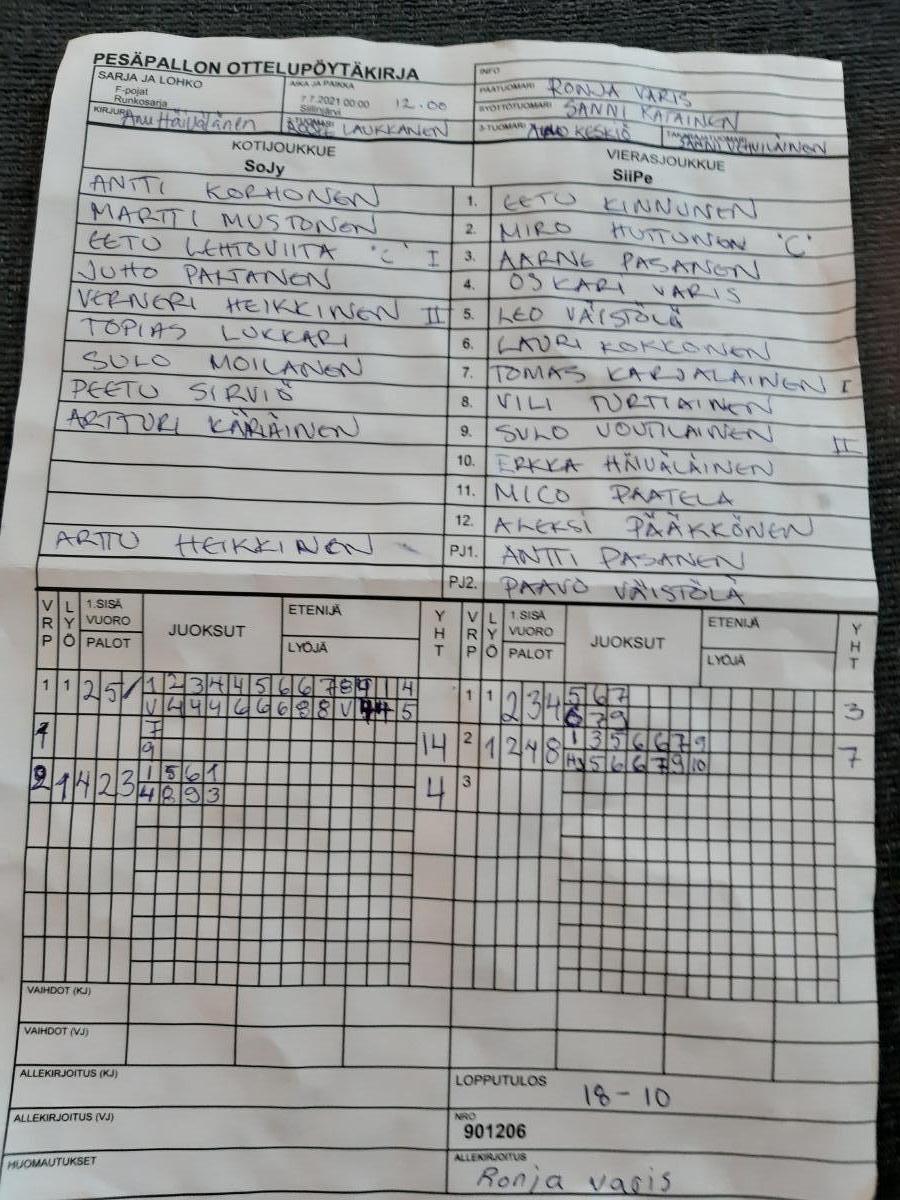 PESÄPALLON OTTELUPÖYTÄKIRJA
SARJA JA LOHKO
F-pojat
Runkosarja
AIKA JA PAIKKA
7.7.2021 00:00 12.00
Siilinjärvi
INFO
PÄÄTUOMARI RONJA VARIS
SYÖTTÖTUOMARI SANNI KATAINEN
KIRJURI Anu Häiväläinen
2-TUOMARI LAUKKANEN
3-TUOMARI KESKIÖ
TAKARAJATUOMARI SANNI
KOTIJOUKKUE
SoJy
VIERASJOUKKUE
SiiPe
ANTTI KORHONEN 1. EETU KINNUNEN
MARTTI MUSTONEN 2. MIRO HUTTUNEN "C"
EETU LEHTOVIITA "C" I 3. AARNE PASANEN
JUHO PAKTANEN 4. OSKARI VARIS
VERNERI HEIKKINEN II 5. LEO VÄISTÖLÄ
TOPIAS LUKKARI 6. LAURI KOKKONEN
SULO MOILANEN 7. TOMAS KARJALAINEN I
PEETU SIRVIÖ 8. VILI TURTIAINEN
ARTTURI KÄRIÄINEN 9. SULO VOUTILAINEN II
10. ERKKA HÄIVÄLÄINEN
11. MICO PAATELA
12. ALEKSI PÄÄKKÖNEN
ARTTU HEIKKINEN PJ1. ANTTI PASANEN
PJ2. PAAVO VÄISTÖLÄ
VRP LYÖ 1.SISÄ VUORO PALOT JUOKSUT ETENIJÄ LYÖJÄ YHT VRP LYÖ 1.SISÄ VUORO PALOT JUOKSUT ETENIJÄ LYÖJÄ YHT
1 1 2 5 / 1 2 3 4 4 5 6 6 7 8 9 1 4 1 1 2 3 4 5 6 7
V 4 4 4 6 6 6 8 8 V 5 6 7 9 3
7 2 1 2 4 8 1 3 5 6 6 7 9
9 14 5 6 6 7 9 10 7
2 1 4 2 3 1 5 6 1 3
4 8 9 3 4
VAIHDOT (KJ)
VAIHDOT (VJ)
ALLEKIRJOITUS (KJ)
LOPPUTULOS 18-10
ALLEKIRJOITUS (VJ)
NRO
901206
HUOMAUTUKSET
ALLEKIRJOITUS
Ronja varis